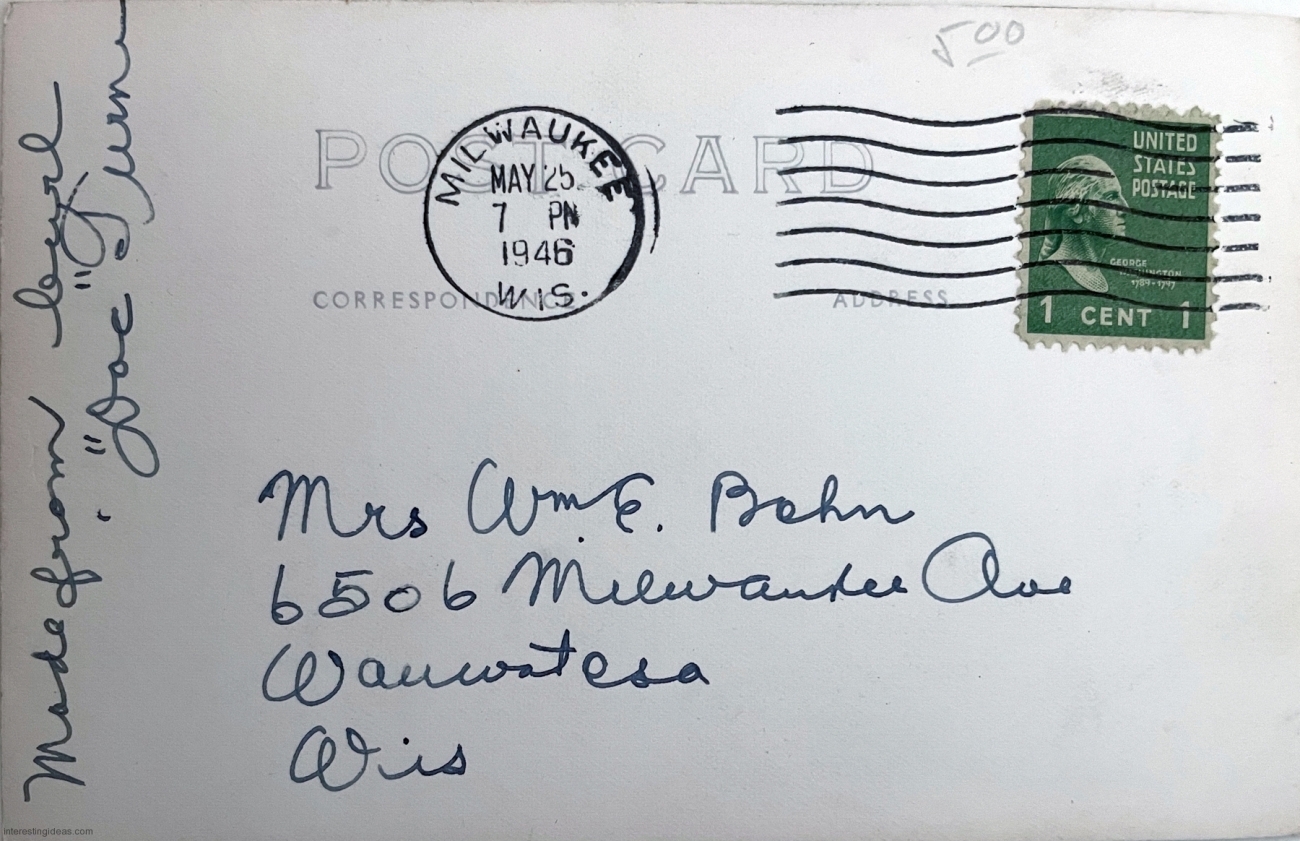 5.00
POST CARD
MILWAUKEE
MAY 25
7 PM
1946
WIS.
UNITED
STATES
POSTAGE
GEORGE
WASHINGTON
1789-1797
1 CENT 1
CORRESPONDENCE
ADDRESS
Made from burl
"Doc" Jurn
Mrs Wm E. Behn
6506 Milwaukee Ave
Wauwatosa
Wis
interestingideas.com